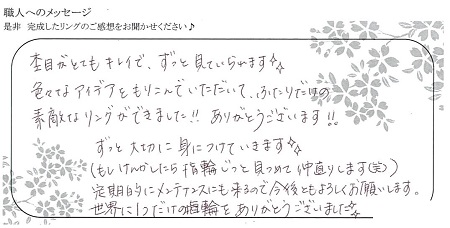 職人へのメッセージ
是非 完成したリングのご感想をお聞かせください♪
杢目がとてもキレイで、ずっと見ていられます☆
色々なアイデアともりこんでいただいて、ふたりだけの
素敵なリングができました!! ありがとうございます!!
ずっと大切に身につけていきます☆
(もしけんかしたら指輪じっと見つめて仲直りします(笑))
定期的にメンテナンスにも来るので今後ともよろしくお願いします。
世界に1つだけの指輪をありがとうございました☆